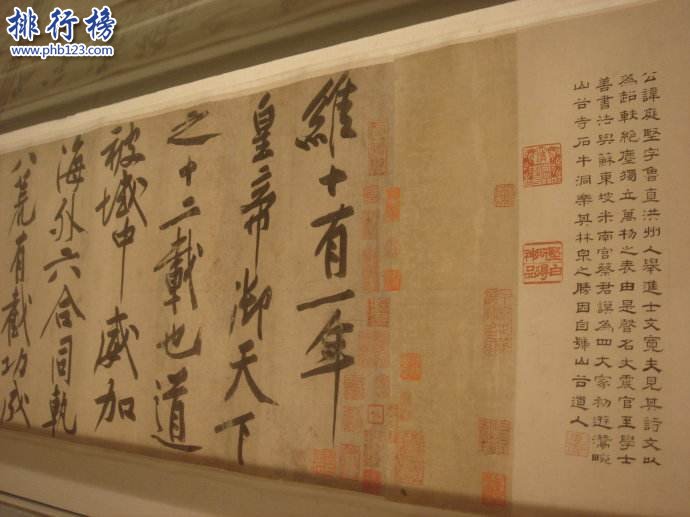 排行榜
www.phb123.com
公諱庭堅字魯直洪州人舉進士文寬夫見其詩文以
為超軼絕塵獨立萬物之表由是聲名大震官至學士
善書法與蘇東坡米南宮蔡君謨為四大家初遊灊皖
山谷寺石牛洞樂其林泉之勝因自號山谷道人
維十有一年
皇帝御天下
之十二載也道
被域中威加
海外六合同軌
八荒有截功成